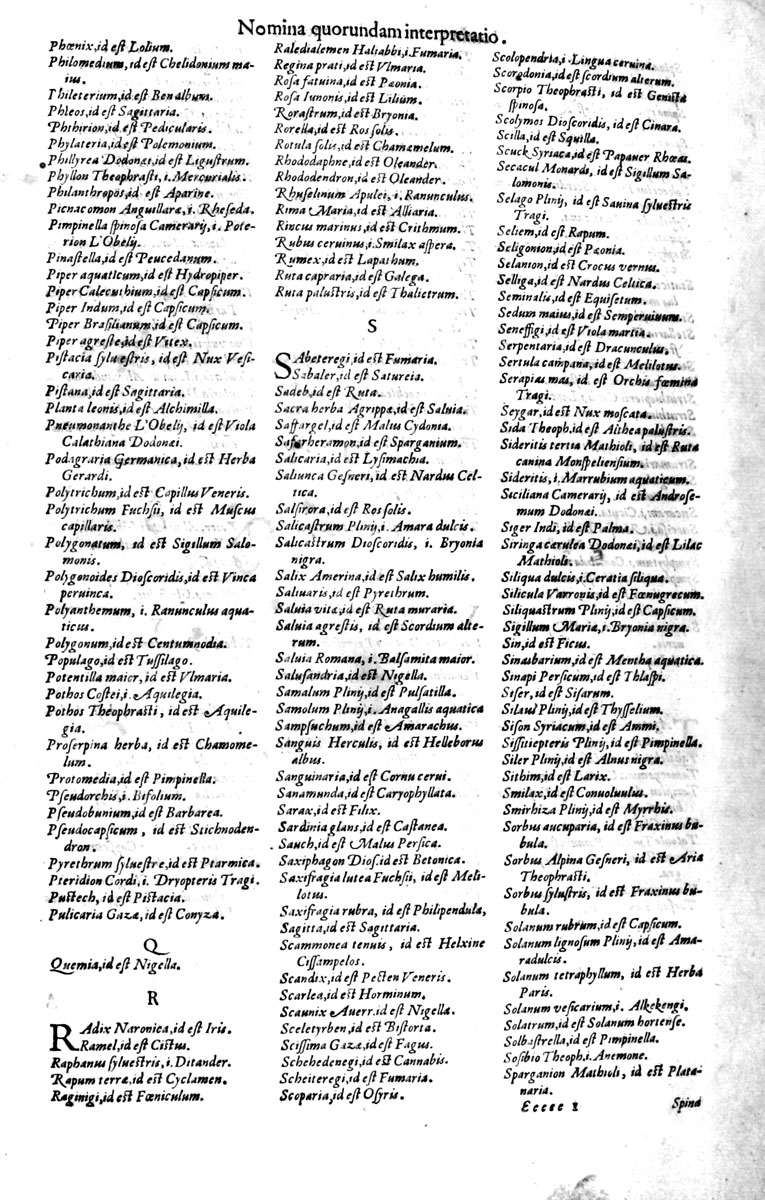 Nomina quorundam interpretatio.
Phœnix, id est Lolium.
Philomedium, id est Chelidonium ma-
ius.
Phileterium, id est Ben album.
Phleos, id est Sagittaria.
Phthirion, id est Pedicularis.
Phylateria, id est Polemonium.
Phillyrea Dodonæi, id est Ligustrum.
Phyllon Theophrasti, i. Mercurialis.
Philanthropos, id est Aparine.
Picnacomon Anguillaræ, i. Rheseda.
Pimpinella spinosa Camerarij, i. Pote-
rion L'Obelij.
Pinastella, id est Peucedanum.
Piper aquaticum, id est Hydropiper.
Piper Calecuthium, id est Capsicum.
Piper Indum, id est Capsicum.
Piper Brasilianum, id est Capsicum.
Piper agreste, id est Vitex.
Pistacia syluestris, id est Nux Vesi-
caria.
Pistana, id est Sagittaria.
Planta leonis, id est Alchimilla.
Pneumonanthe L'Obelij, id est Viola
Calathiana Dodonæi.
Podagraria Germanica, id est Herba
Gerardi.
Polytrichum, id est Capillus Veneris.
Polytrichum Fuchsii, id est Muscus
capillaris.
Polygonatum, id est Sigillum Salo-
monis.
Polygonoides Dioscoridis, id est Vinca
peruinca.
Polyanthemum, i. Ranunculus aqua-
ticus.
Polygonum, id est Centumnodia.
Populago, id est Tussilago.
Potentilla maior, id est Vlmaria.
Pothos Costei, i. Aquilegia.
Pothos Theophrasti, id est Aquile-
gia.
Proserpina herba, id est Chamome-
lum.
Protomedia, id est Pimpinella.
Pseudorchis, i. Bifolium.
Pseudobunium, id est Barbarea.
Pseudocapsicum, id est Stichnoden-
dron.
Pyrethrum syluestre, id est Ptarmica.
Pteridion Cordi, i. Dryopteris Tragi.
Pustech, id est Pistacia.
Pulicaria Gazæ, id est Conyza.
Q
Quemia, id est Nigella.
R
RAdix Naronica, id est Iris.
Ramel, id est Cistus.
Raphanus syluestris, i. Ditander.
Rapum terræ, id est Cyclamen.
Raginigi, id est Fœniculum.
Raledialemen Haliabbi, i. Fumaria.
Regina prati, id est Vlmaria.
Rosa fatuina, id est Pæonia.
Rosa Iunonis, id est Lilium.
Rorastrum, id est Bryonia.
Rorella, id est Ros solis.
Rotula solis, id est Chamæmelum.
Rhododaphne, id est Oleander.
Rhododendron, id est Oleander.
Rhuselinum Apulei, i. Ranunculus.
Rima Maria, id est Alliaria.
Rincus marinus, id est Crithmum.
Rubus ceruinus, i. Smilax aspera.
Rumex, id est Lapathum.
Ruta capraria, id est Galega.
Ruta palustris, id est Thalietrum.
S
SAbeteregi, id est Fumaria.
Sabaler, id est Satureia.
Sadeb, id est Ruta.
Sacra herba Agrippæ, id est Saluia.
Saffargel, id est Malus Cydonia.
Safarheramon, id est Sparganium.
Salicaria, id est Lysimachia.
Saliunca Gesneri, id est Nardus Cel-
tica.
Salsirora, id est Ros solis.
Salicastrum Plinij, i. Amara dulcis.
Salicastrum Dioscoridis, i. Bryonia
nigra.
Salix Amerina, id est Salix humilis.
Saliuaris, id est Pyrethrum.
Saluia vitæ, id est Ruta muraria.
Saluia agrestis, id est Scordium alte-
rum.
Saluia Romana, i. Balsamita maior.
Salusandria, id est Nigella.
Samalum Plinij, id est Pulsatilla.
Samolum Plinij, i. Anagallis aquatica
Sampsuchum, id est Amarachus.
Sanguis Herculis, id est Helleborus
albus.
Sanguinaria, id est Cornu cerui.
Sanamunda, id est Caryophyllata.
Sarax, id est Filix.
Sardinia glans, id est Castanea.
Sauch, id est Malus Persica.
Saxiphagon Dios. id est Betonica.
Saxifragia lutea Fuchsii, id est Meli-
lotus.
Saxifragia rubra, id est Philipendula,
Sagitta, id est Sagittaria.
Scammonea tenuis, id est Helxine
Cissampelos.
Scandix, id est Pecten Veneris.
Scarlea, id est Horminum.
Scaunix Auerr, id est Nigella.
Sceletyrben, id est Bistorta.
Scissima Gazæ, id est Fagus.
Schehedenegi, id est Cannabis.
Scheiteregi, id est Fumaria.
Scoparia, id est Osyris.
Scolopendria, i. Lingua ceruina.
Scorodonia, id est scordium alterum.
Scorpio Theophrasti, id est Genista
spinosa.
Scolymos Dioscoridis, id est Cinara.
Scilla, id est Squilla.
Scuck Syriaca, id est Papauer Rhœas.
Secacul Monardi, id est Sigillum Sa-
lomonis.
Selago Plinij, id est Sauina syluestris
Tragi.
Seliem, id est Rapum.
Seligonion, id est Pæonia.
Selanion, id est Crocus vernus.
Selliga, id est Nardus Celtica.
Seminalis, id est Equisetum.
Sedum maius, id est Semperuiuum.
Seneffigi, id est Viola martia.
Serpentaria, id est Dracunculus.
Sertula campana, id est Melilotus.
Serapias mas, id est Orchis fœmina
Tragi.
Seygar, id est Nux moscata.
Sida Theoph. id est Althea palustris.
Sideritis tertia Mathioli, id est Ruta
canina Monspeliensium.
Sideritis, i. Marrubium aquaticum.
Siciliana Camerarij, id est Androse-
mum Dodonæi.
Siger Indi, id est Palma.
Siringa cærulea Dodonæi, id est Lilac
Mathioli.
Siliqua dulcis, i. Ceratia siliqua.
Silicula Varronis, id est Fœnugrecum.
Siliquastrum Plinij, id est Capsicum.
Sigillum Mariæ, i. Bryonia nigra.
Sin, id est Ficus.
Sinasbarium, id est Mentha aquatica.
Sinapi Persicum, id est Thlaspi.
Sifer, id est Sisarum.
Silaus Plinij, id est Thysselium.
Sison Syriacum, id est Ammi.
Sissitiepteris Plinij, id est Pimpinella.
Siler Plinij, id est Alnus nigra.
Sithim, id est Larix.
Smilax, id est Conuoluulus.
Smirhiza Plinij, id est Myrrhis.
Sorbus aucuparia, id est Fraxinus bu-
bula.
Sorbus Alpina Gesneri, id est Aria
Theophrasti.
Sorbus syluestris, id est Fraxinus bu-
bula.
Solanum rubrum, id est Capsicum.
Solanum lignosum Plinij, id est Ama-
radulcis.
Solanum tetraphyllum, id est Herba
Paris.
Solanum vesicarium, i. Alkekengi.
Solatrum, id est Solanum hortense.
Solbastrella, id est Pimpinella.
Sosibio Theoph. i. Anemone.
Sparganion Mathioli, id est Plata-
naria.
Eeeee 1
Spina